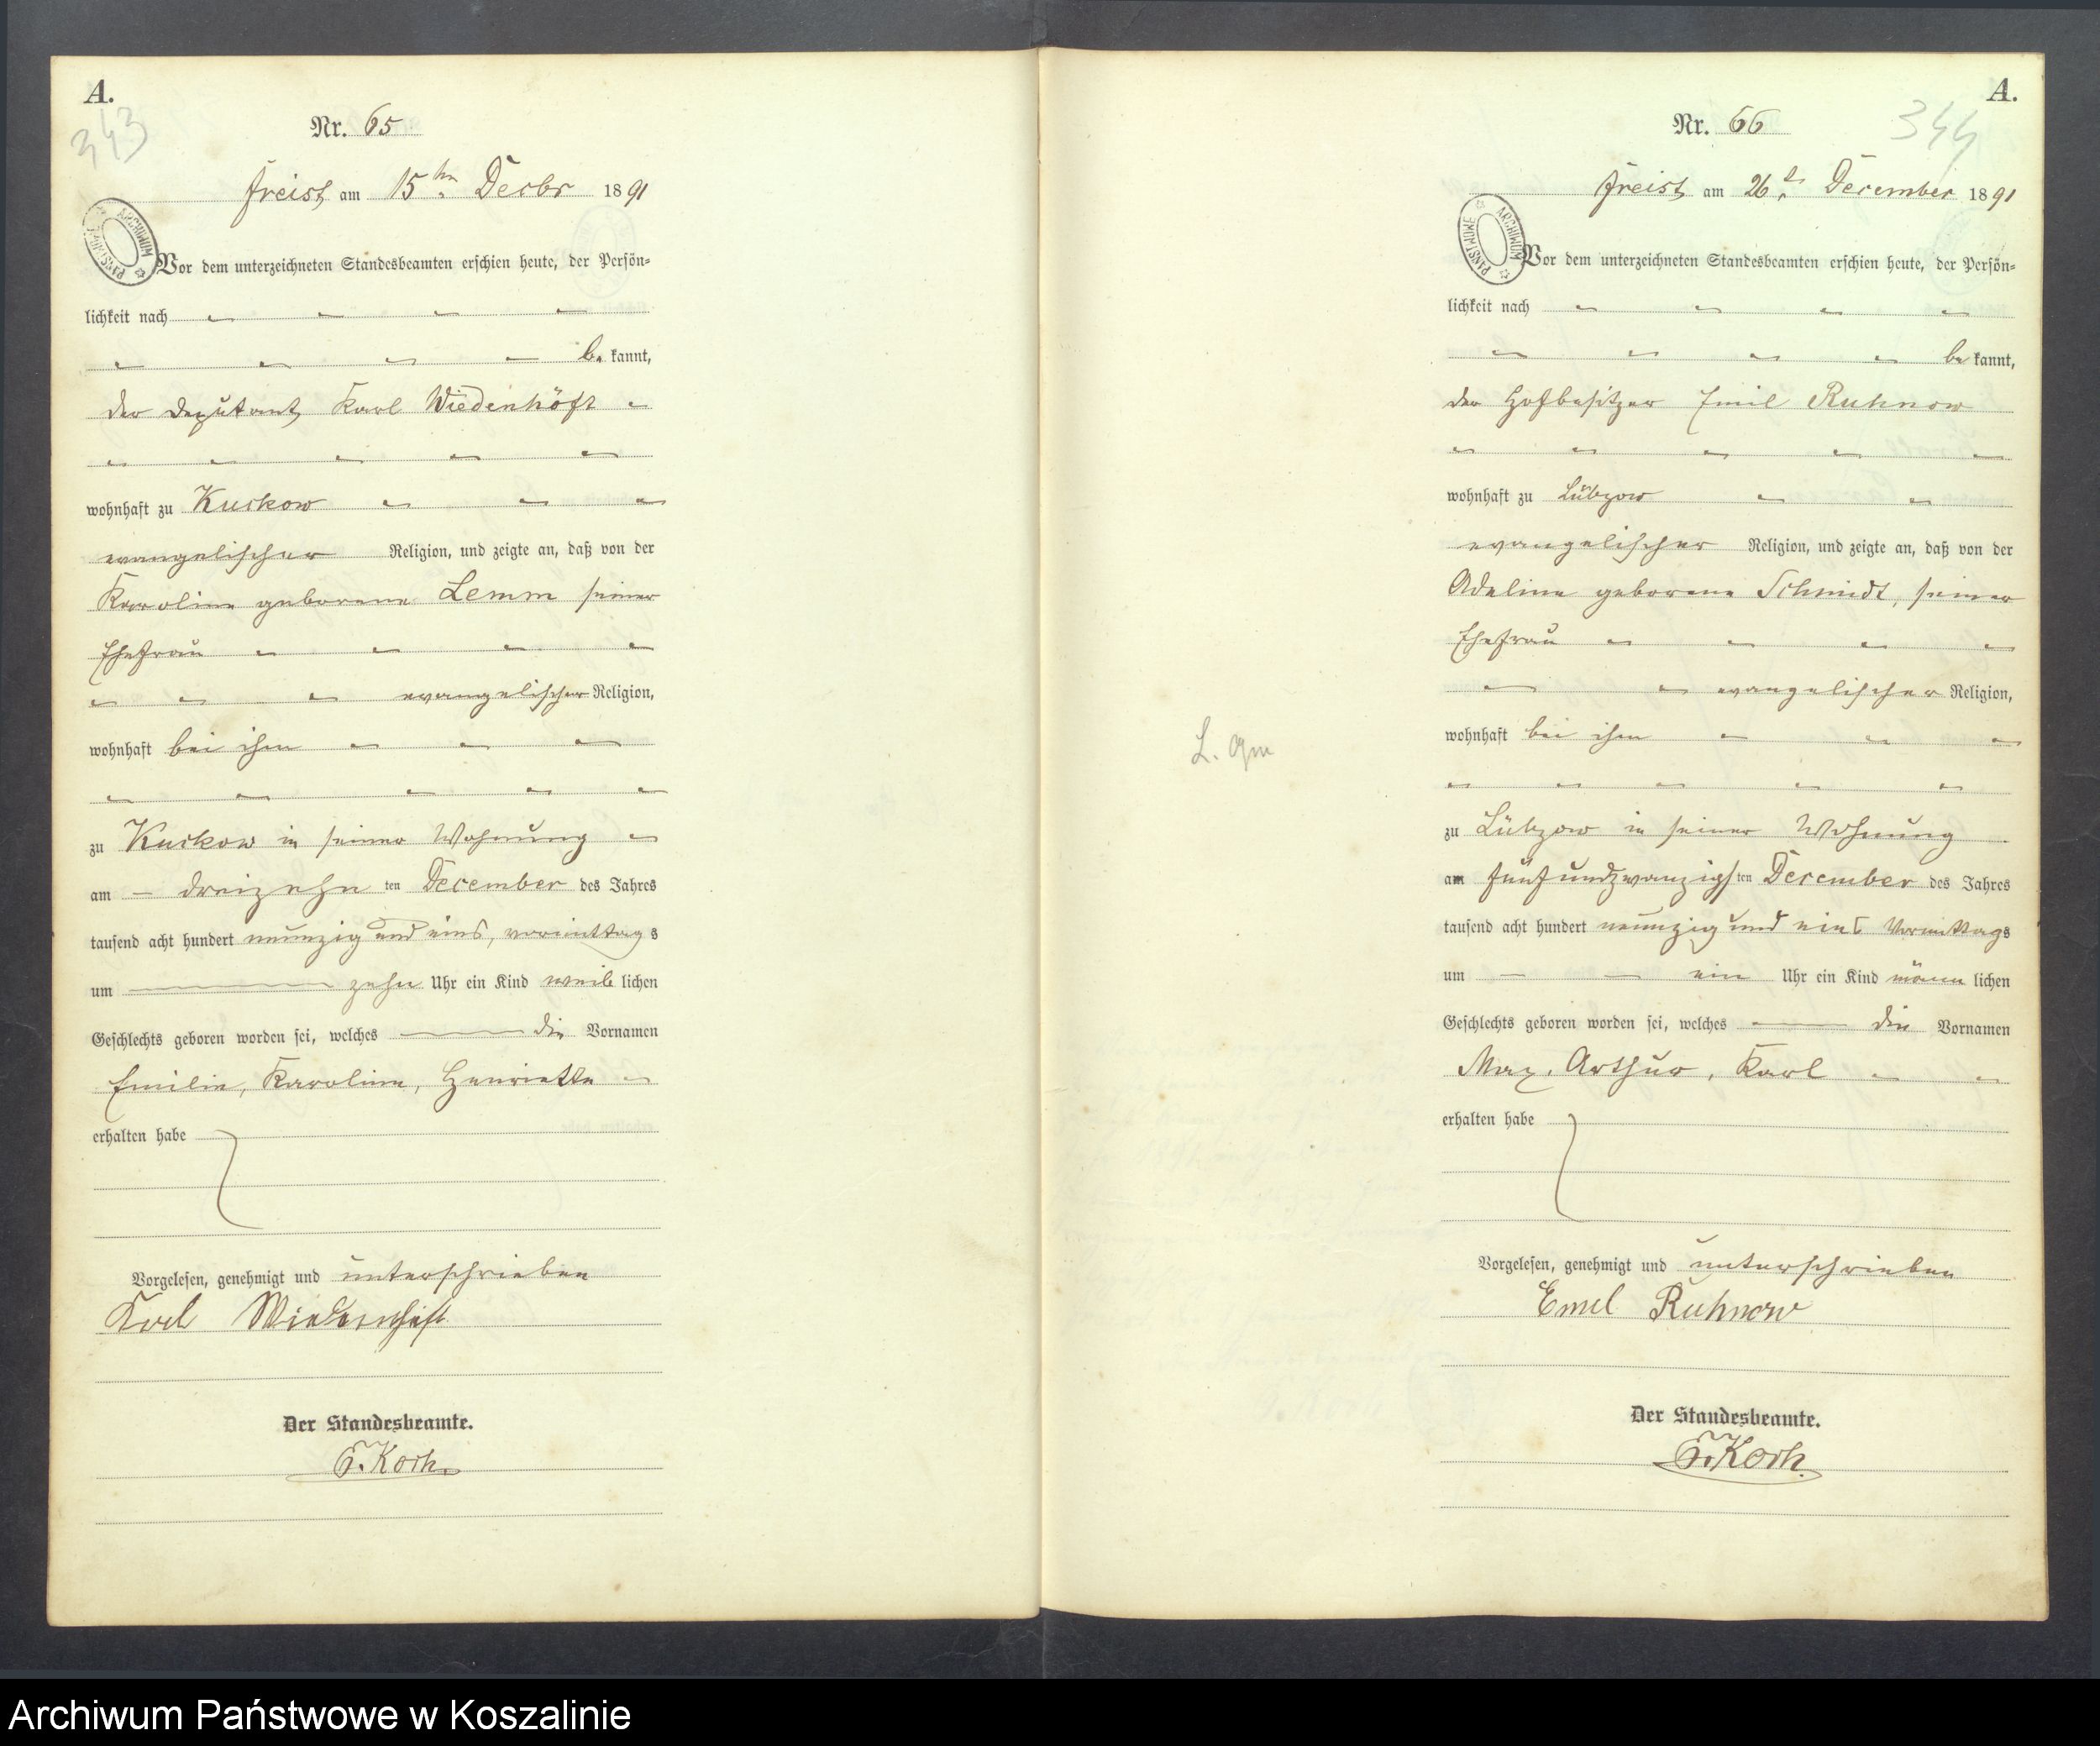 A.
343
Nr. 65
Freist am 15ten Decbr 1891
ARCHIWUM PAŃSTWOWE
Vor dem unterzeichneten Standesbeamten erschien heute, der Persön-
lichkeit nach
be kannt,
der Deputant Karl Wiedenhöft
wohnhaft zu Kuskow
evangelischer Religion, und zeigte an, daß von der
Karoline geborene Lemm seiner
Ehefrau
evangelischer Religion,
wohnhaft bei ihm
zu Kuskow in seiner Wohnung
am dreizehn ten December des Jahres
tausend acht hundert neunzig und eins, vormittag s
um zehn Uhr ein Kind weib lichen
Geschlechts geboren worden sei, welches die Vornamen
Emilie, Karoline, Henriette
erhalten habe
Vorgelesen, genehmigt und unterschrieben
Karl Wiedenhöft
Der Standesbeamte.
Koch.
A.
344
Nr. 66
Freist am 26t December 1891
ARCHIWUM PAŃSTWOWE
Vor dem unterzeichneten Standesbeamten erschien heute, der Persön-
lichkeit nach
be kannt,
der Hofbesitzer Emil Ruhnow
wohnhaft zu Lübzow
evangelischer Religion, und zeigte an, daß von der
Adeline geborene Schmidt, seiner
Ehefrau
evangelischer Religion,
wohnhaft bei ihm
zu Lübzow in seiner Wohnung
am fünfundzwanzigsten December des Jahres
tausend acht hundert neunzig und eins Vormittags
um ein Uhr ein Kind männ lichen
Geschlechts geboren worden sei, welches die Vornamen
Max, Arthur, Karl
erhalten habe
Vorgelesen, genehmigt und unterschrieben
Emil Ruhnow
Der Standesbeamte.
Koch.
Archiwum Państwowe w Koszalinie